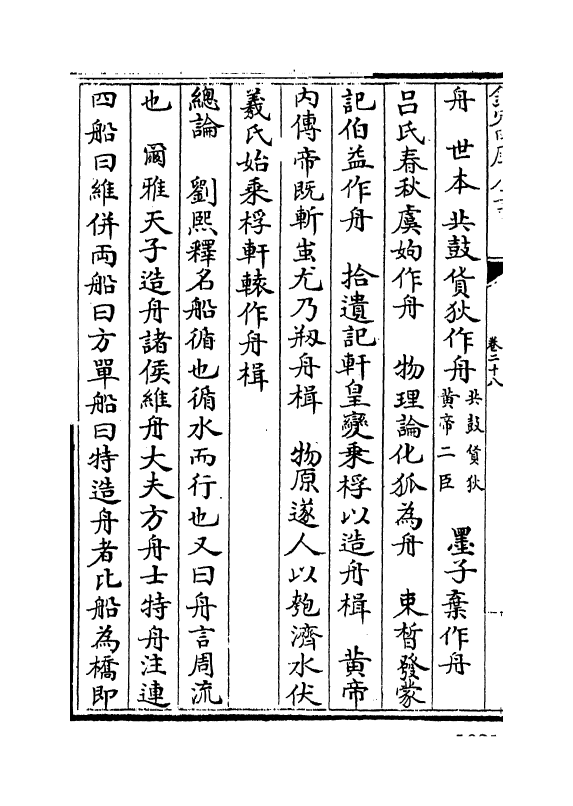 卷二十八
舟　世本共鼓貨狄作舟共鼓貨狄黄帝二臣　墨子棄作舟
呂氏春秋虞姁作舟　物理論化狐為舟　束晳發蒙
記伯益作舟　拾遺記軒皇變乗桴以造舟楫　黄帝
内傳帝既斬蚩尤乃刱舟楫　物原遂人以匏濟水伏
羲氏始乗桴軒轅作舟楫
總論　劉熙釋名船循也循水而行也又曰舟言周流
也　爾雅天子造舟諸侯維舟大夫方舟士特舟注連
四船曰維併兩船曰方單船曰特造舟者比船為橋即